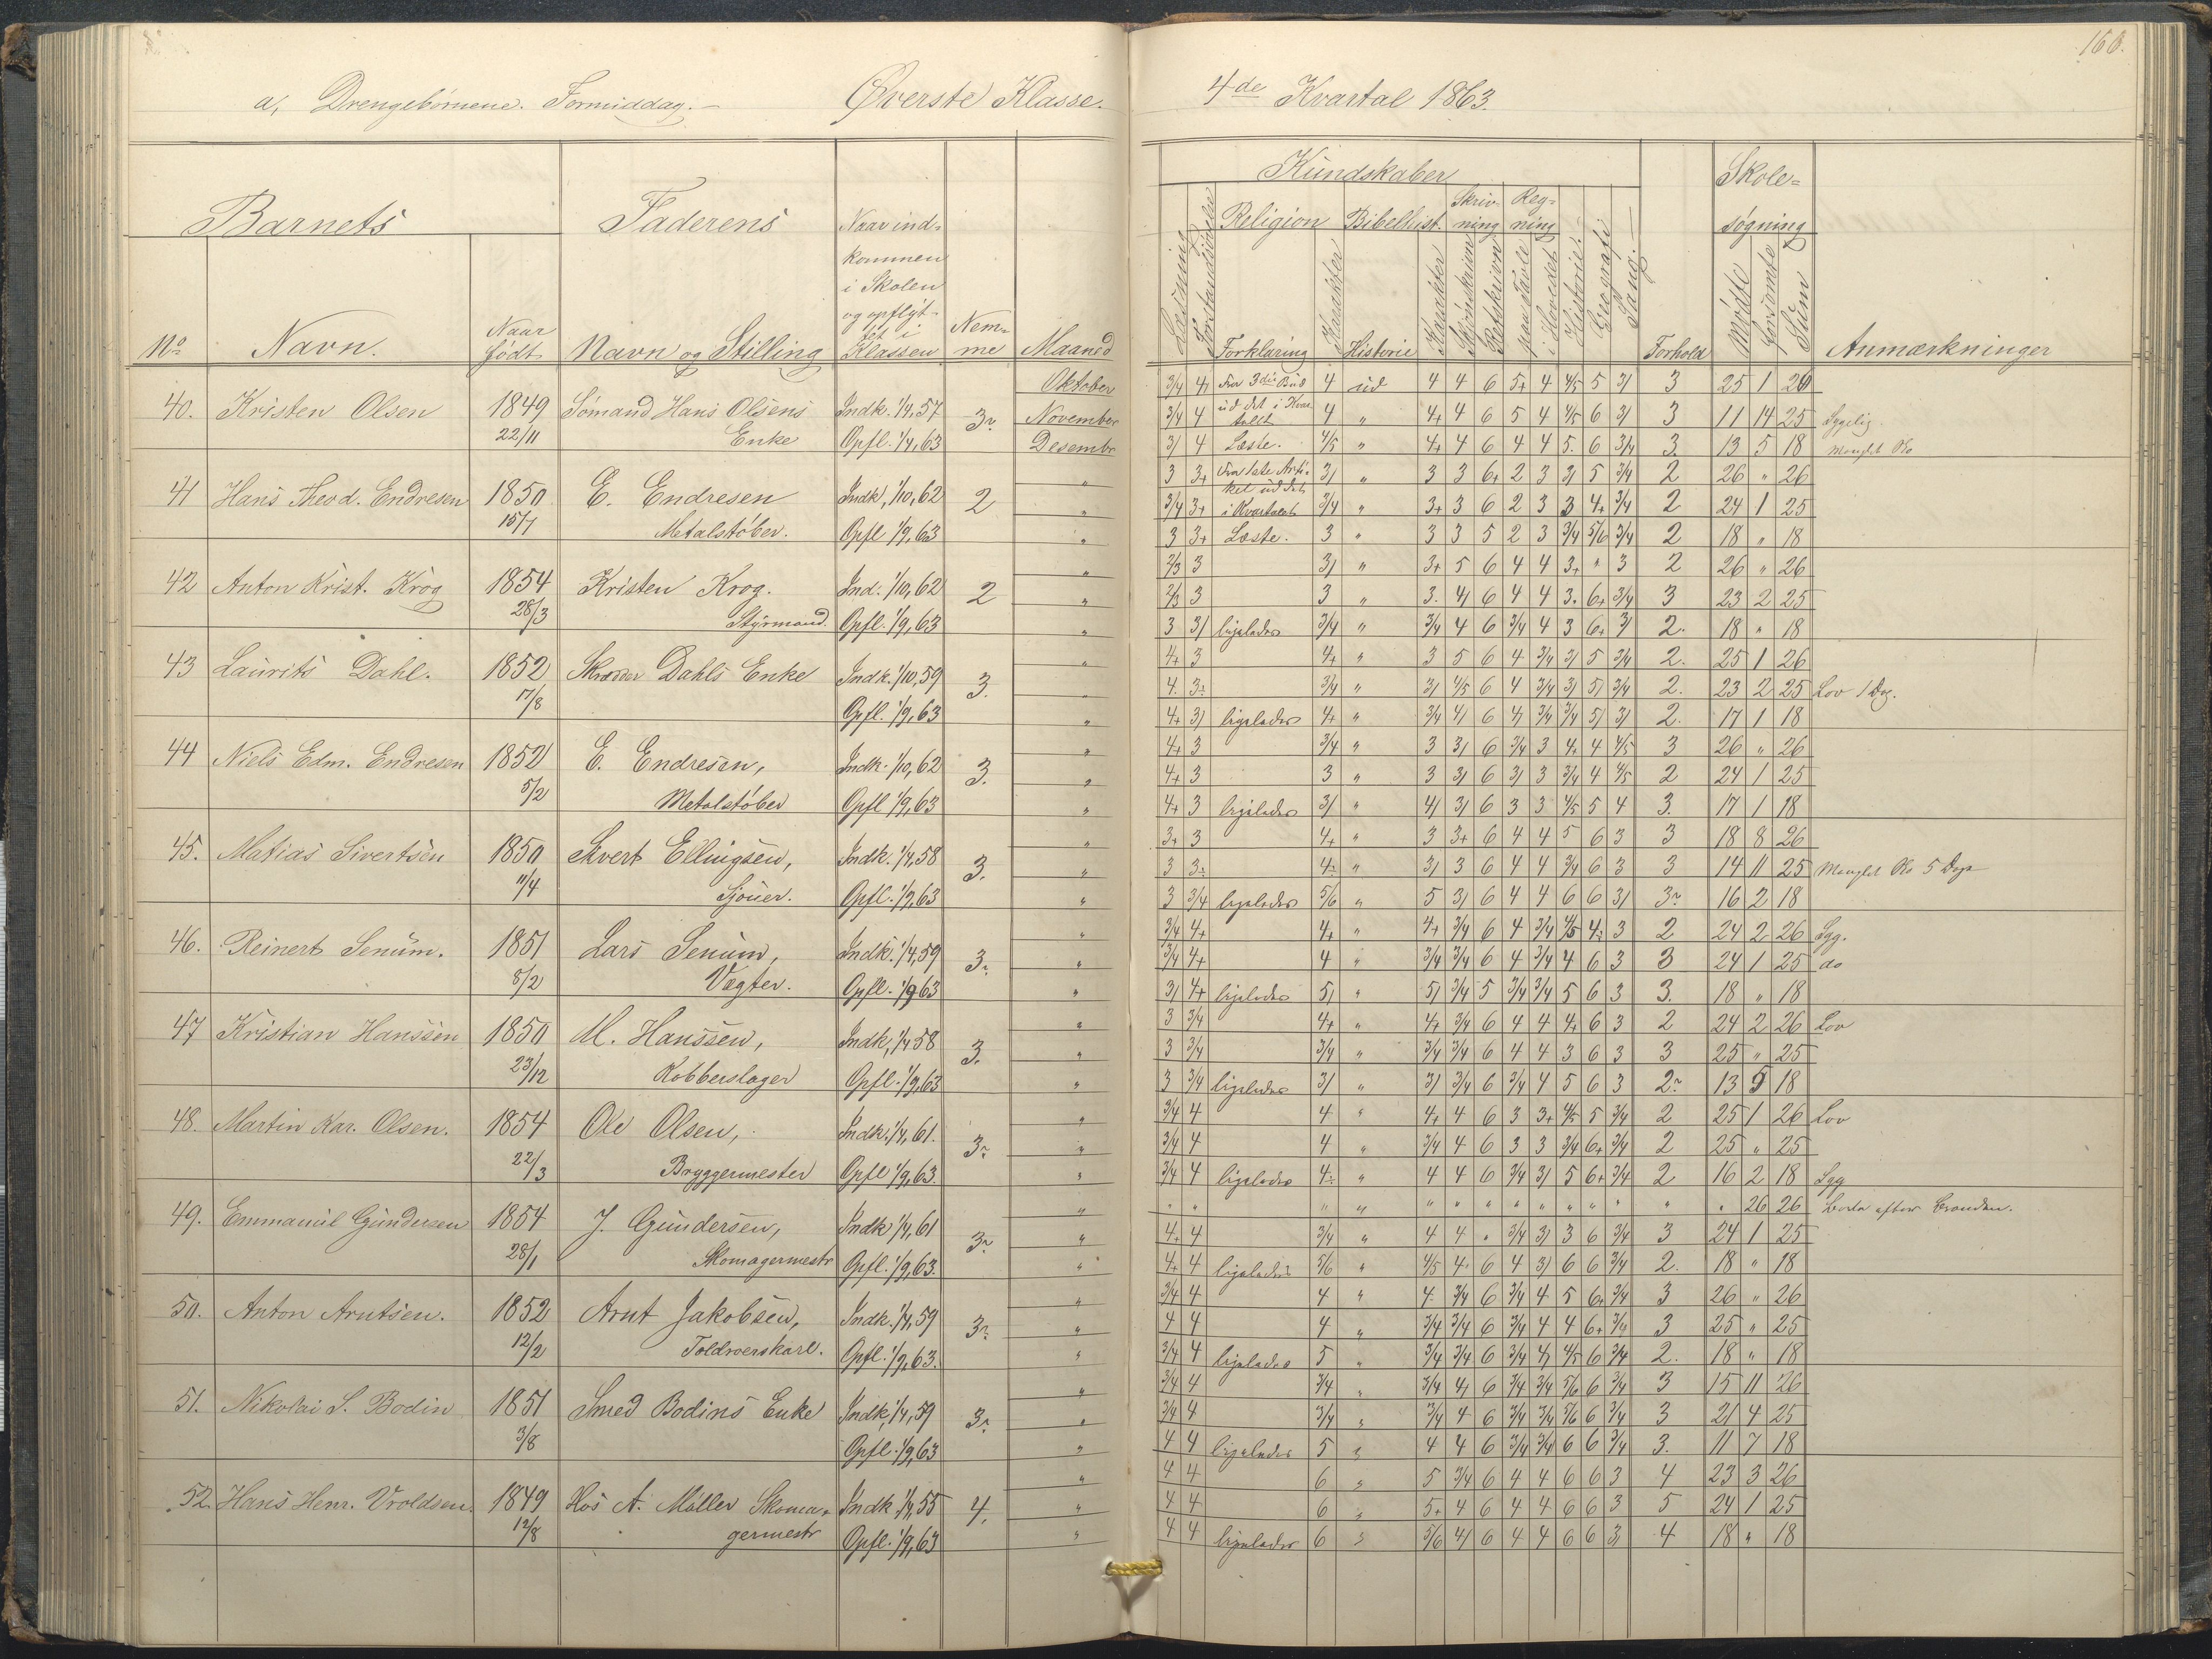 166.
a, Drengebørnene. Formiddag. – Øverste Klasse. 4de Kvartal 1863.
Barnets Faderens Naar ind-kommen i Skolen og opflyttet i Klassen Nemme Maaned Kundskaber Forhold Skole-søgning Anmærkninger
No Navn. Naar født Navn og Stilling
Læsning Forstandsøvelse Religion Bibelhist. Skrivning Regning Historie. Geografi Sang.
Forklaring Karakter Historie Karakter Skjønskrivn Retskrivn paa Tavle i Hovedet Mødte Forsømte Sum
40. Kristen Olsen 1849 Sømand Hans Olsens Indk. 1/4, 57 3 Oktober 3/4 Fra 3die Bud 4 ud 4 4 6 5+ 4 4/5 5 3/ 3 25 1 26
22/11 Enke Opfl. 1/4, 63 November 3/4 4 ud det i Kvartalet 4 " 4+ 4 6 5 4 4/5 6 3/ 3 11 14 25 Sygelig.
Desembr 3/ 4 Læste. 4/5 " 4+ 4 6 4 4 5. 6 3/4 3 13 5 18
41 Hans Theod. Endresen 1850 E. Endresen Indk, 1/10, 62 2 " 3 3+ Fra 1ste Artikel ud det 3/ " 3 3 6+ 2 3 3/ 5 3/4 2 26 " 26
15/7 Metalstøber. Opfl 1/9, 63 " 3/4 3+ i Kvartalet 3/4 " 3+ 3 6 2 3 3 4+ 3/4 2 24 1 25
" 3 3+ Læste. 3 " 3 3 5 2 3 3/4 5/6 3/4 2 18 " 18
42 Anton Krist. Krog 1854 Kristen Krog. Ind. 1/10, 62 2 " 2/3 3 3/ " 3+ 5 6 4 4 3+ " 3 2 26 " 26
28/3 Styrmand. Opfl. 1/9, 63 " 2/3 3 3 " 3. 4/ 6 4 4 3. 6+ 3/4 3 23 2 25
" 3 3/ ligeledes 3/4 " 3/4 4 6 3/4 4 3 6+ 3/ 2. 18 " 18
43 Laurits Dahl. 1852 Skrædder Dahls Enke Indk. 1/10, 59 3. " 4+ 3 4+ " 3 5 6 4 3/4 3/ 5 3/4 2. 25 1 26
17/8 Opfl. 1/9, 63 " 4. 3 3/4 " 3/ 4/5 6 4 3/4 3/ 5/ 3/4 2. 23 2 25 Lov 1 Dag.
" 4+ 3/ ligeledes 4+ " 3/4 4/ 6 4/ 3/4 3/4 5/ 3/ 2. 17 1 18
44 Niels Edm. Endresen 1852 E. Endresen, Indk. 1/10, 62 3. " 4+ 3 3/4 " 3 3/ 6 3/4 3 4+ 4 4/5 3 26 " 26
5/2 Metalstøber Opfl 1/9, 63 " 4+ 3 3 " 3 3/ 6 3/ 3 3/4 4 4/5 2 24 1 25
" 4+ 3 ligeledes 3/ " 4/ 3/ 6 3 3 4/5 5 4 3. 17 1 18
45. Matias Sivertsen 1850 Sivert Ellingsen, Indk. 1/4, 58 3. " 3+ 3 4+ " 3 3+ 6 4 4 5 6 3 3 18 8 26
11/4 Sjouer. Opfl. 1/9, 63 " 3 3 4 " 3/ 3 6 4 4 3/4 6 3 3 14 11 25 5 Dage
" 3 3/4 ligeledes 5/6 " 5 3/ 6 4 4 6 6 3/ 3 16 2 18
46. Reinert Senum. 1851 Lars Senum, Indk. 1/4, 59 3 " 3/4 4+ 4+ " 4+ 3/4 6 4 3/4 4/5 4 3 2 24 2 26 Syg.
8/2 Vægter. Opfl. 1/9 63 " 3/4 4+ 4 " 3/4 3/4 6 4 3/4 4 6 3 3 24 1 25 do
" 3/ 4+ ligeledes 5/ " 5/ 3/4 5 3/4 3/4 5 6 3 3. 18 " 18
47 Kristian Hanssen 1850 M. Hanssen, Indk, 1/4 58 3. " 3 3/4 4+ " 4+ 3/4 6 4 4 4+ 6 3 2 24 2 26 Lov
23/12 Kobberslager Opfl. 1/9, 63 " 3 3/4 3/4 " 3/4 3/4 6 4 4 3 6 3 3 25 " 25
" 3 3/4 ligeledes 3/ " 3/ 3/4 6 3/4 4 5 6 3 2 13 5 18
48. Martin Kar. Olsen. 1854 Ole Olsen, Indk. 1/4, 61. 3 " 3/4 4 4 " 4+ 4 6 3 3+ 4/5 5 3/4 2 25 1 26 Lov
22/3 Bryggermester Opfl 1/9, 63. " 3/4 4 4 " 3/4 4 6 3 3 3/4 6+ 3/4 2 25 " 25
" 3/4 4 ligeledes 4 " 4 4 6 3/4 3/ 5 6+ 3/4 2 16 2 18 Syg
49. Emmanuel Gundersen 1854 J. Gundersen, Indk 1/4, 61 3 " " " " " " " " " " " " " " " 26 26 Borte efter Branden.
28/1 Skomagermestr Opfl. 1/9, 63. " 4+ 4 3/4 " 4 4 " 3/4 3/ 3 6 3/4 3 24 1 25
" 4+ 4 ligeledes 5/6 " 4/5 4 6 4 3/ 6 6 3/4 2. 18 " 18
50. Anton Arntsen. 1852 Arnt Jakobsen, Indk. 1/4, 59 3 " 3/4 4 4 " 4. 3/4 6 3/4 4 5 6+ 3/4 3 26 " 26
12/2 Toldroerskarl. Opfl. 1/9, 63. " 4 4 4 " 3/4 3/4 6 3/4 4 4 6+ 3/4 3 25 " 25
" 3/4 4 ligeledes 5 " 3/4 3/4 6 3/4 4/ 4/5 6 3/4 2. 18 " 18
51. Nikolai S. Bodin 1851 Smed Bodins Enke Indk, 1/4, 59 3 " 3/4 4 3/4 " 3/4 4/ 6 3/4 3/4 5/6 6 3/4 3 15 11 26
3/8 Opfl. 1/9, 63 " 3/4 4 3/4 " 3/4 4 6 3/4 3/4 5/6 6 3/4 3 21 4 25
" 4 4 ligeledes 5 " 4 4 6 3/4 3/4 6 6 3/4 3. 11 7 18
52. Hans Henr. Vroldsen. 1849 Hos A. Møller Skoma- Indk 1/4, 55 4. " 4 4 6 " 5 3/4 6 4 4 6 6 3 4 23 3 26
12/8 germestr Opfl. 1/9, 63 " 4 4 6 " 5+ 4 6 4 4 6 6 3 5 24 1 25
" 4 4 ligeledes 6 " 5/6 4/ 6 4 4 6 6 3/ 4 18 " 18